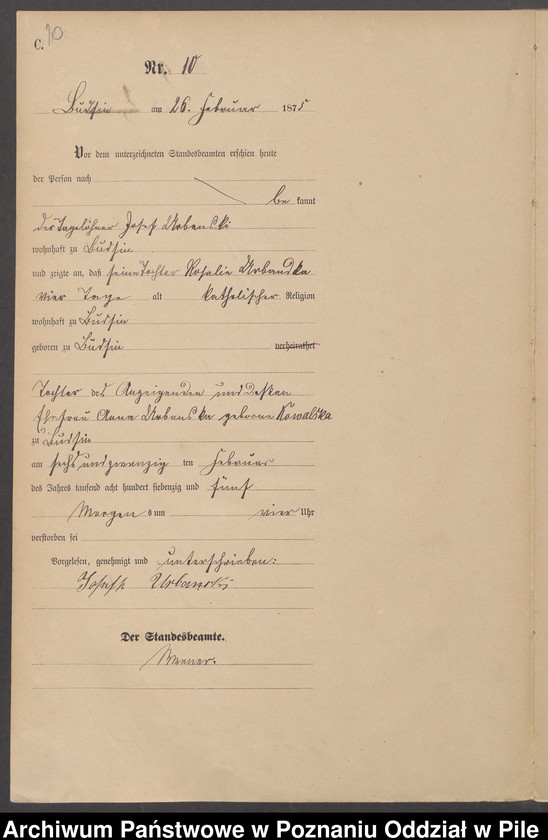 C. 10
Nr. 10
Budsin am 26. Februar 1875
Vor dem unterzeichneten Standesbeamten erschien heute
der Person nach
be kannt
der Tagelöhner Josef Urbanski
wohnhaft zu Budsin
und zeigte an, daß seine Tochter Rosalie Urbanska
vier Tage alt katholischer Religion
wohnhaft zu Budsin
geboren zu Budsin verheirathet
Tochter des Anzeigenden und dessen
Ehefrau Anna Urbanska geborene Kowalska
zu Budsin
am sechsundzwanzig ten Februar
des Jahres tausend acht hundert siebenzig und fünf
Morgen s um vier Uhr
verstorben sei
Vorgelesen, genehmigt und unterschrieben:
Joseph Urbanski
Der Standesbeamte.
Archiwum Państwowe w Poznaniu Oddział w Pile